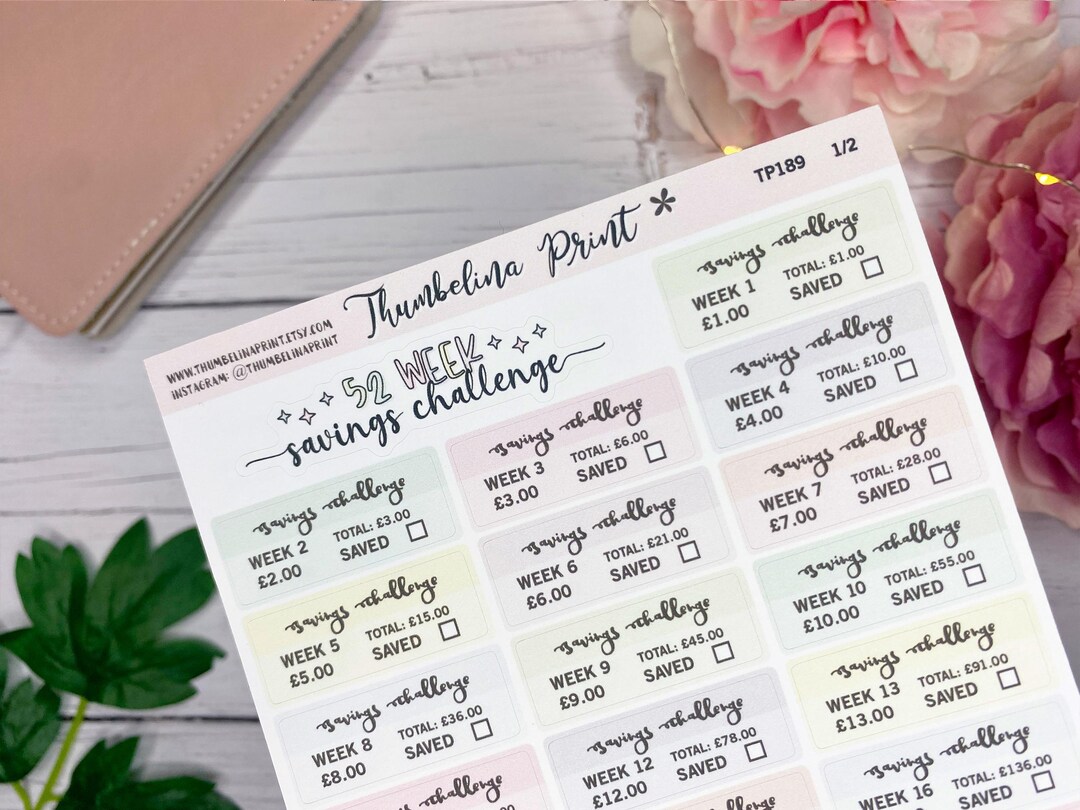 TP189 1/2
Thumbelina Print *
WWW.THUMBELINAPRINT.ETSY.COM
INSTAGRAM: @THUMBELINAPRINT
52 WEEK
savings challenge
savings challenge
WEEK 1 TOTAL: £1.00
£1.00 SAVED
savings challenge
WEEK 2 TOTAL: £3.00
£2.00 SAVED
savings challenge
WEEK 3 TOTAL: £6.00
£3.00 SAVED
savings challenge
WEEK 4 TOTAL: £10.00
£4.00 SAVED
savings challenge
WEEK 5 TOTAL: £15.00
£5.00 SAVED
savings challenge
WEEK 6 TOTAL: £21.00
£6.00 SAVED
savings challenge
WEEK 7 TOTAL: £28.00
£7.00 SAVED
savings challenge
WEEK 8 TOTAL: £36.00
£8.00 SAVED
savings challenge
WEEK 9 TOTAL: £45.00
£9.00 SAVED
savings challenge
WEEK 10 TOTAL: £55.00
£10.00 SAVED
savings challenge
savings challenge
WEEK 12 TOTAL: £78.00
£12.00 SAVED
savings challenge
WEEK 13 TOTAL: £91.00
£13.00 SAVED
savings challenge
savings challenge
WEEK 16 TOTAL: £136.00
SAVED